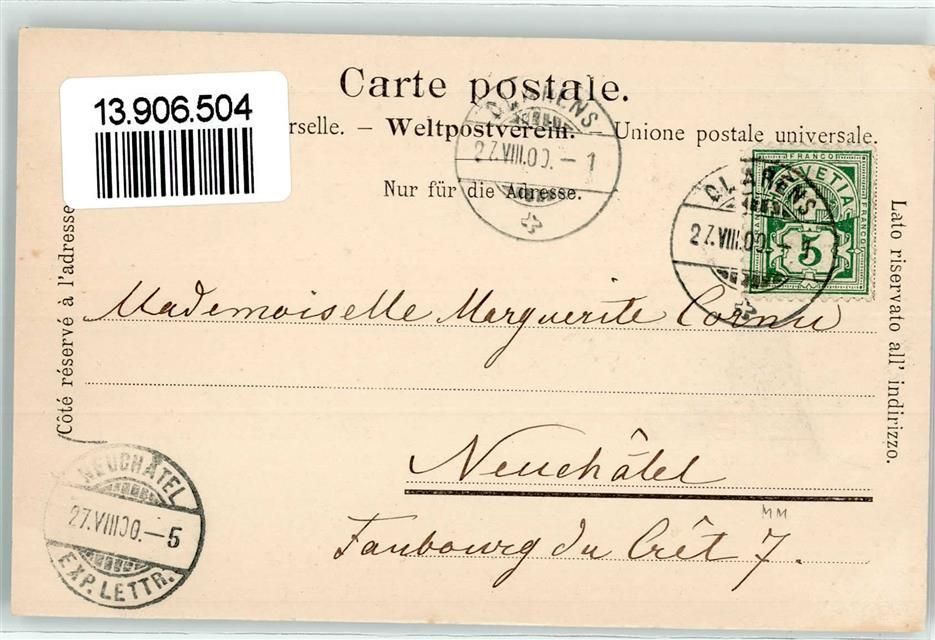 Carte postale.
13.906.504
rselle. – Weltpostverein. – Unione postale universale.
Nur für die Adresse.
CLARENS
27.VIII.00.–1
CLARENS
27.VIII.00.–5
FRANCO
HELVETIA
FRANCO
FRANCO
5
Côté réservé à l'adresse
Lato riservato all' indirizzo.
Mademoiselle Marguerite Cornu
Neuchâtel
MM
Faubourg du Crêt 7.
NEUCHÂTEL
27.VIII.00.–5
EXP. LETTR.